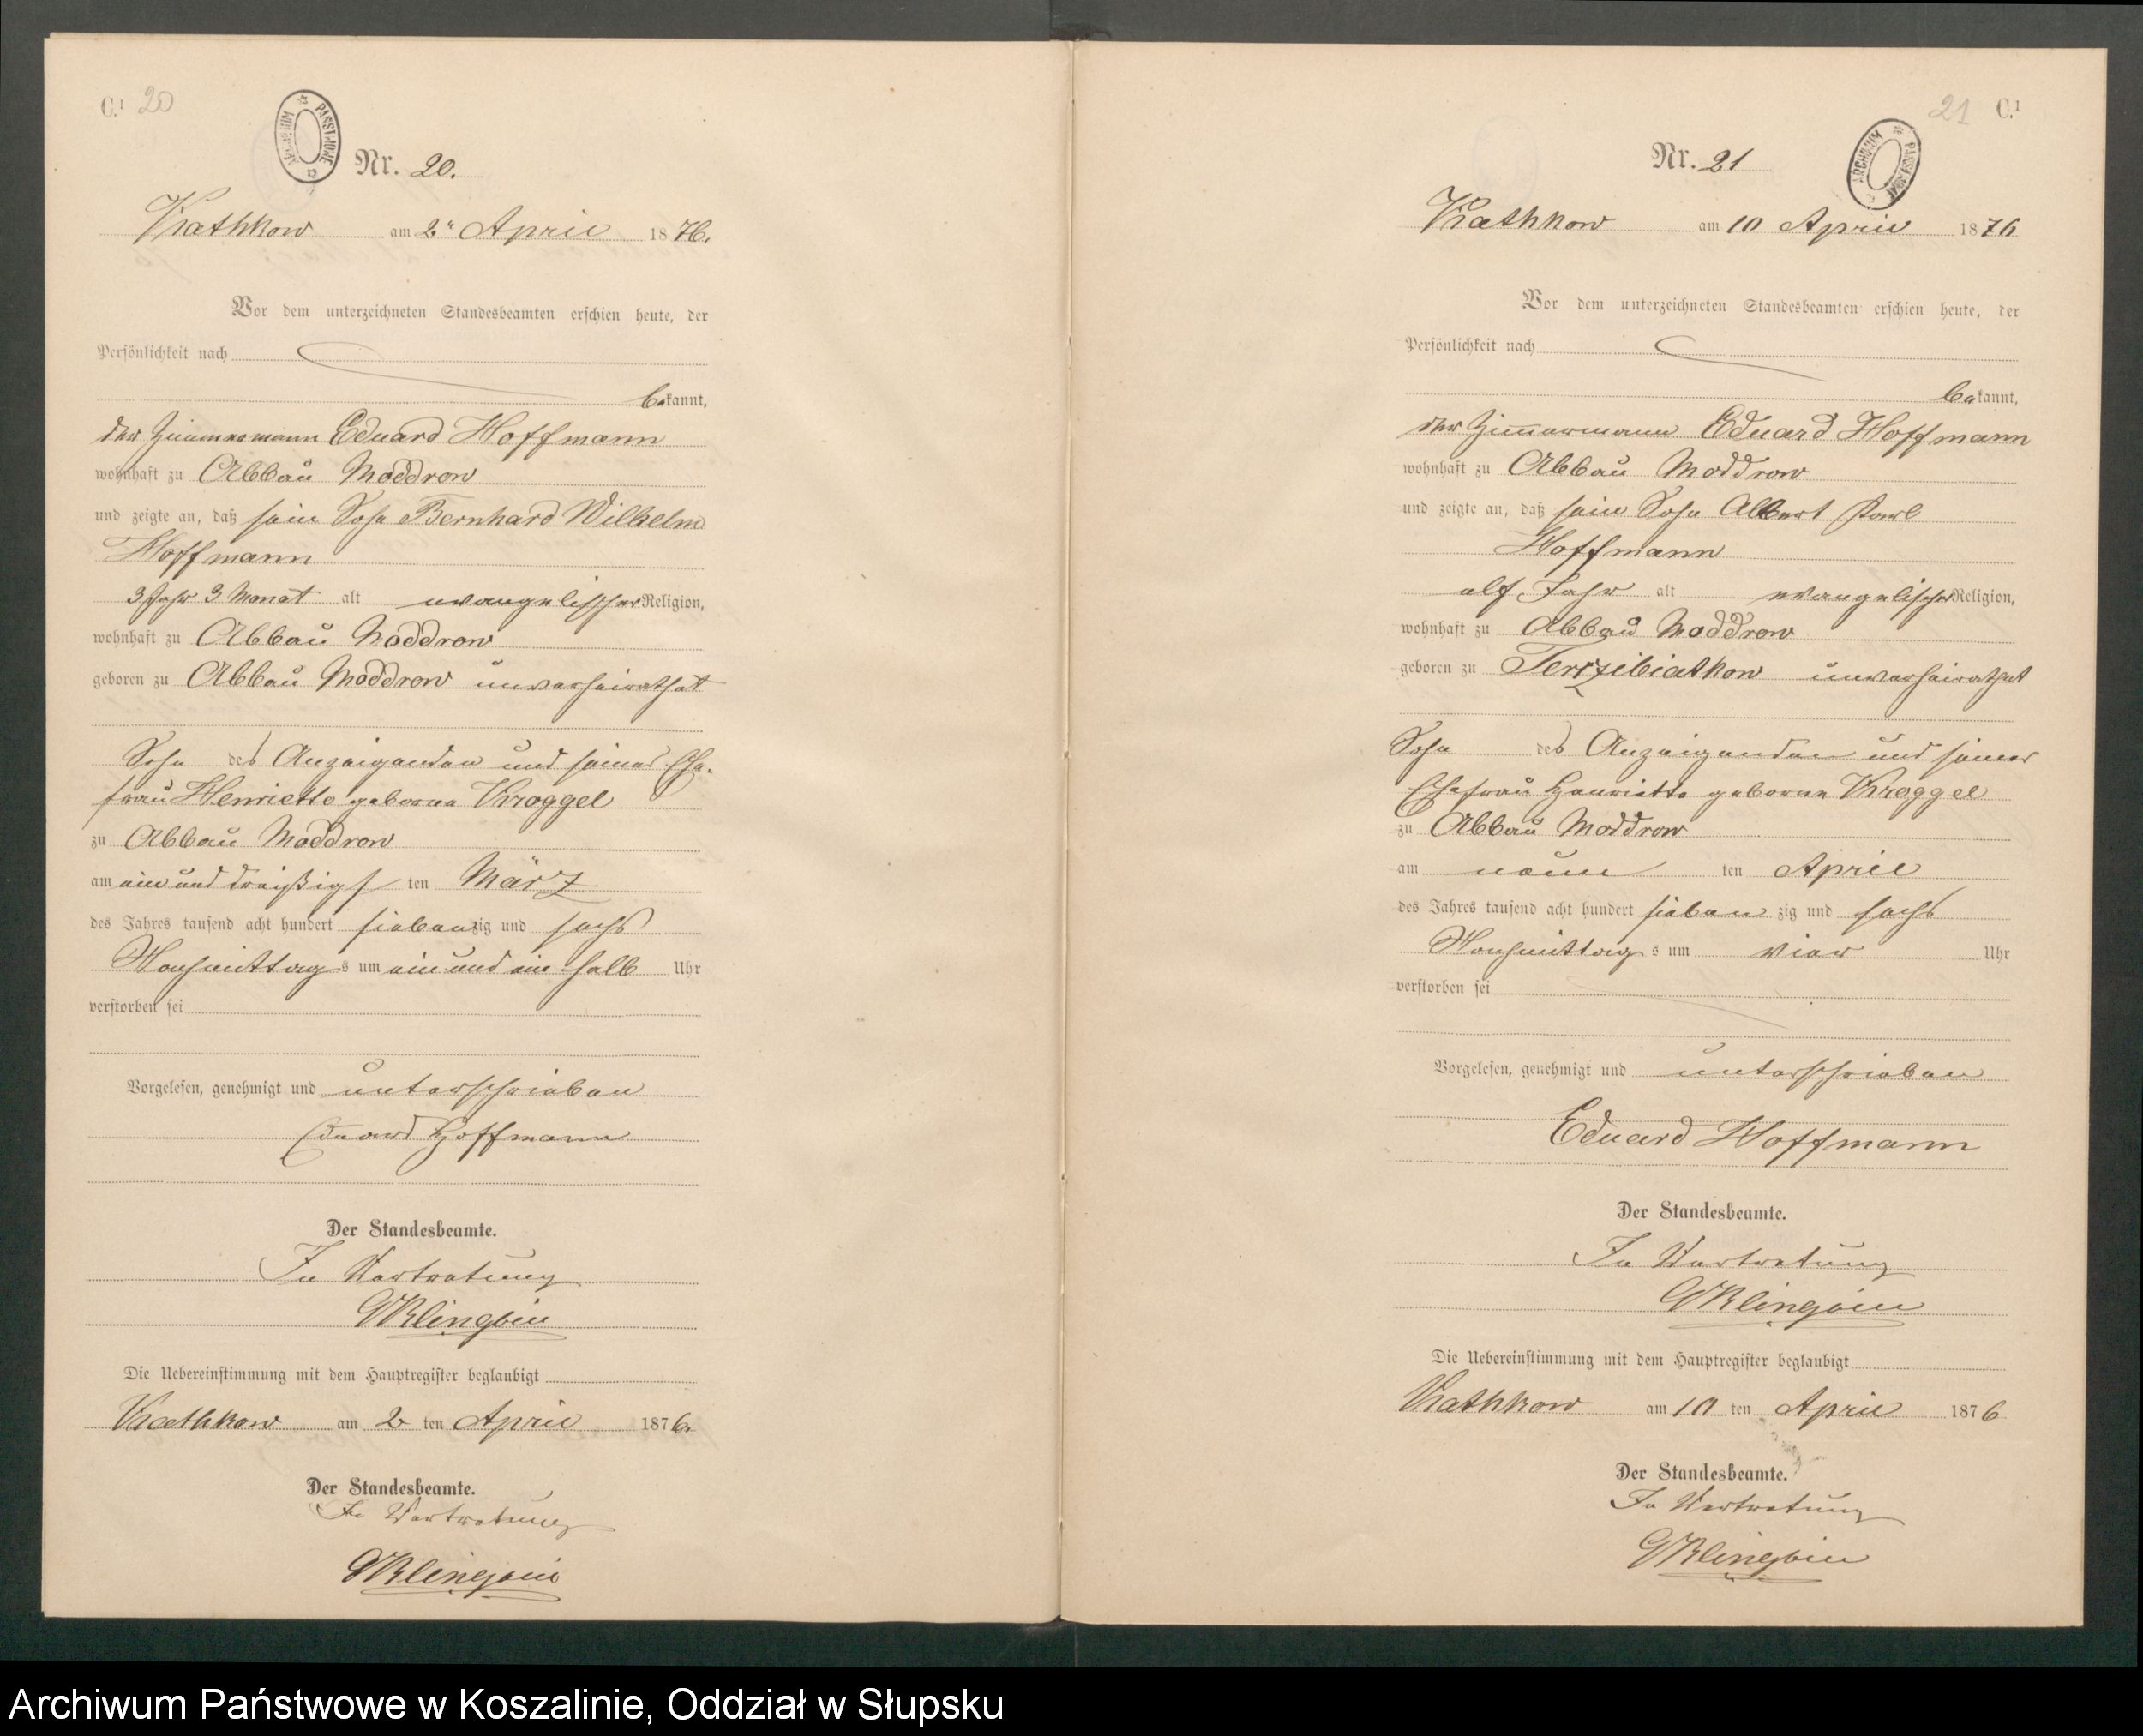 C.1 20
ARCHIWUM PAŃSTWOWE
Nr. 20.
Krathkow am 2n April 1876.
Vor dem unterzeichneten Standesbeamten erschien heute, der
Persönlichkeit nach
bekannt,
der Zimmermann Eduard Hoffmann
wohnhaft zu Abbau Moddrow
und zeigte an, daß sein Sohn Bernhard Wilhelm
Hoffmann
3 Jahr 3 Monat alt evangelischer Religion,
wohnhaft zu Abbau Moddrow
geboren zu Abbau Moddrow unverheirathet
Sohn des Anzeigenden und seiner Ehe-
frau Henriette geborne Kroggel
zu Abbau Moddrow
am ein und dreißigs ten März
des Jahres tausend acht hundert siebenzig und sechs
Nachmittags um ein und ein halb Uhr
verstorben sei
Vorgelesen, genehmigt und unterschrieben
Eduard Hoffmann
Der Standesbeamte.
In Vertretung
Die Uebereinstimmung mit dem Hauptregister beglaubigt
Krathkow am 2 ten April 1876.
Der Standesbeamte.
In Vertretung
21 C.1
ARCHIWUM PAŃSTWOWE
Nr. 21
Krathkow am 10 April 1876
Vor dem unterzeichneten Standesbeamten erschien heute, der
Persönlichkeit nach
bekannt,
der Zimmermann Eduard Hoffmann
wohnhaft zu Abbau Moddrow
und zeigte an, daß sein Sohn Albert Karl
Hoffmann
elf Jahr alt evangelischer Religion,
wohnhaft zu Abbau Moddrow
geboren zu unverheirathet
Sohn des Anzeigenden und seiner
Ehefrau Henriette geborne Kroggel
zu Abbau Moddrow
am neun ten April
des Jahres tausend acht hundert siebenzig und sechs
Nachmittags um vier Uhr
verstorben sei
Vorgelesen, genehmigt und unterschrieben
Eduard Hoffmann
Der Standesbeamte.
In Vertretung
Die Uebereinstimmung mit dem Hauptregister beglaubigt
Krathkow am 10 ten April 1876
Der Standesbeamte.
In Vertretung
Archiwum Państwowe w Koszalinie, Oddział w Słupsku